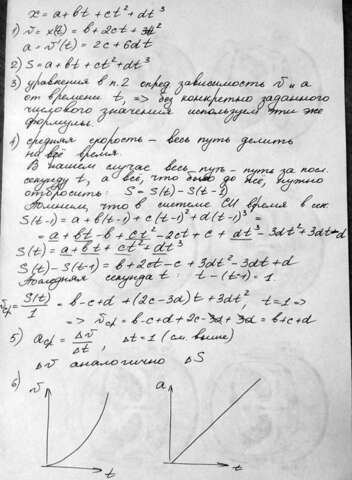 x = a+bt+ct²+dt³
1) v = x'(t) = b+2ct+3t²
a = v'(t) = 2c+6dt
2) S = a+bt+ct²+dt³
3) уравнения в п.2 опред зависимость v и a
от времени t, => без конкретно заданного
числового значения используем эти же
формулы.
4) средняя скорость – весь путь делить
на всё время.
В нашем случае весь путь – путь за посл.
секунду t, а всё, что было до неё, нужно
отбросить: S = S(t)-S(t-1)
Помним, что в системе СИ время в сек
S(t-1) = a+b(t-1)+c(t-1)²+d(t-1)³ =
= a+bt-b+ct²-2ct+c+dt³-3dt²+3dt-d
S(t) = a+bt+ct²+dt³
S(t)-S(t-1) = b+2ct-c+3dt²-3dt+d
Последняя секунда t: t-(t-1)=1.
vср = S(t)/1 = b-c+d+(2c-3d)t+3dt², t=1 =>
=> vср = b-c+d+2c-3d+3d = b+c+d
5) aср = Δv/Δt, Δt=1 (см. выше)
Δv аналогично ΔS
6) v t a t